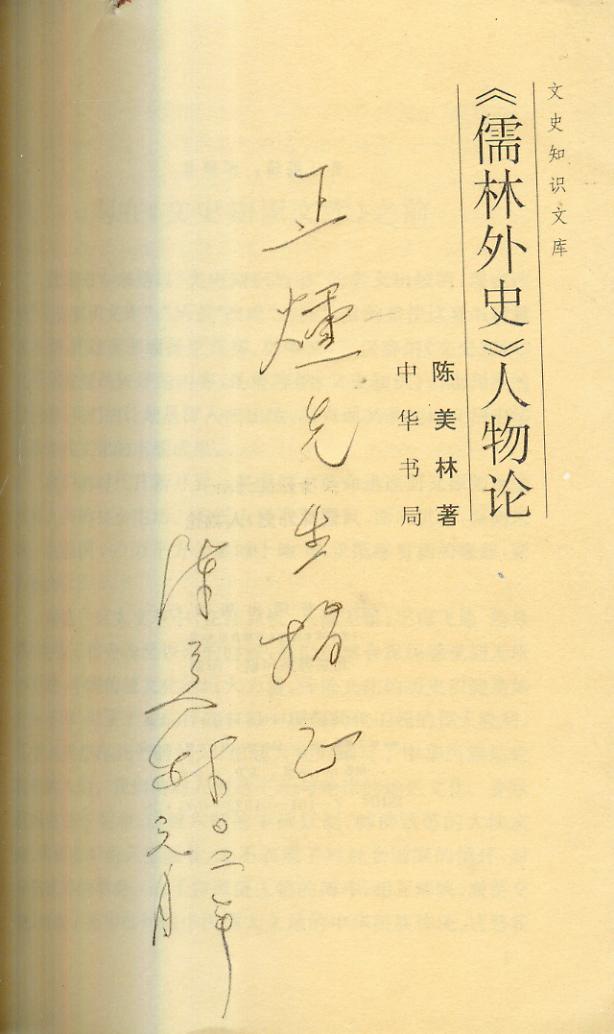 文史知识文库
《儒林外史》人物论
陈美林著
中华书局
正煃先生指正
陈美林
〇二年
元月